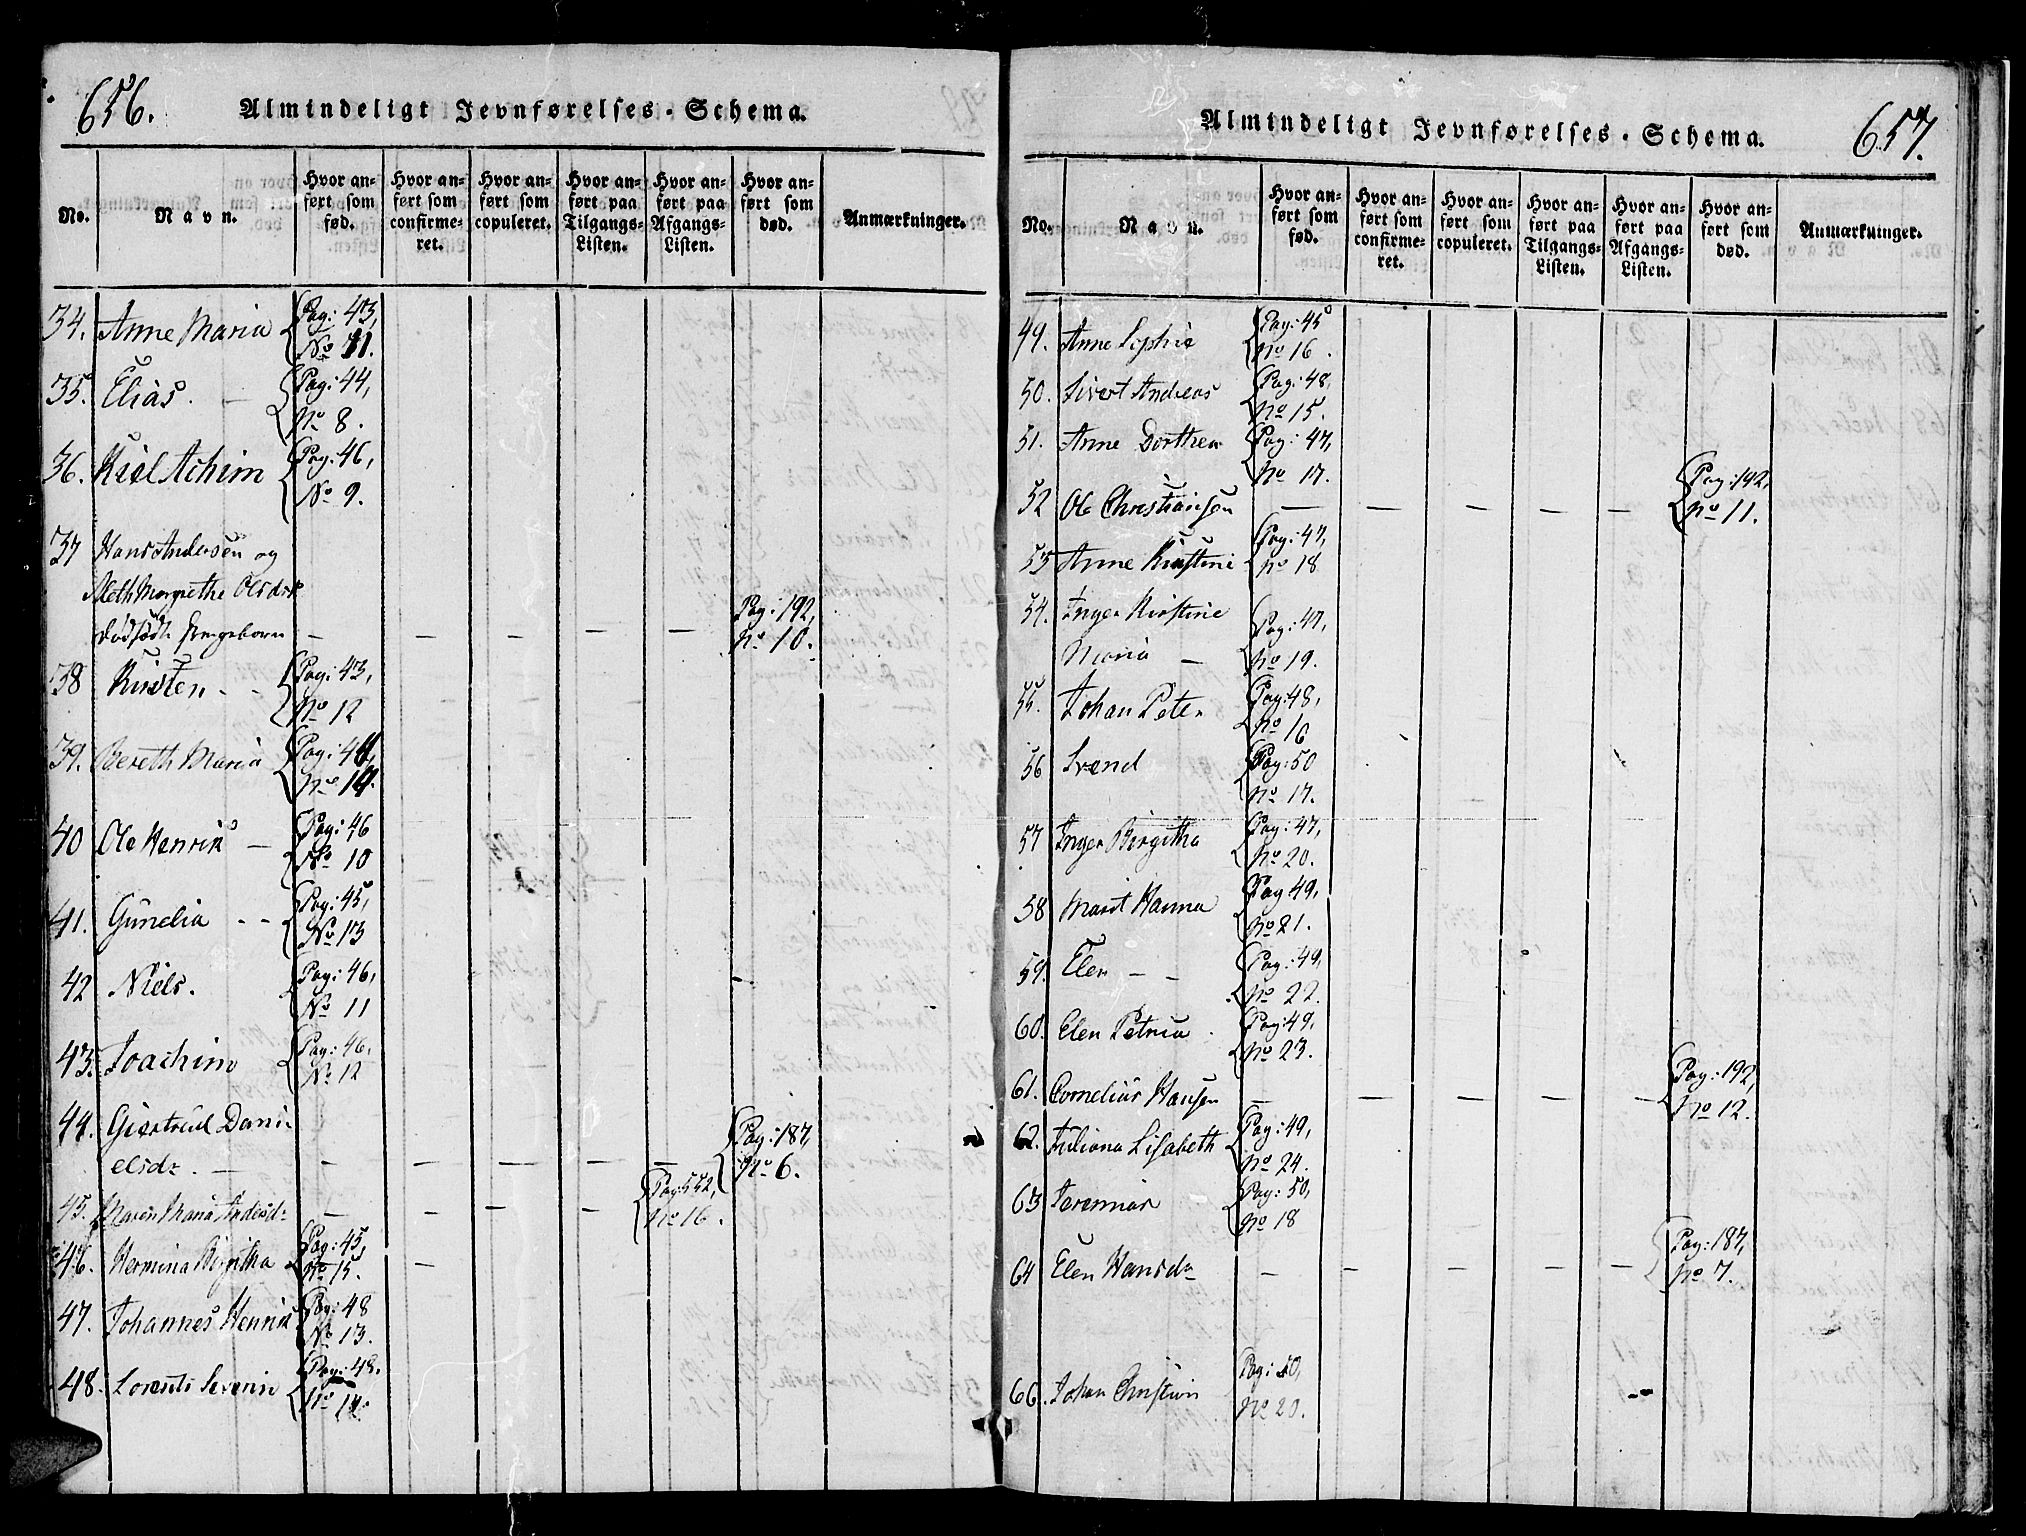 656.
Almindeligt Jevnførelses-Schema.
No.
Navn.
Hvor anført som fød.
Hvor anført som confirmeret.
Hvor anført som copuleret.
Hvor anført paa Tilgangs-Listen.
Hvor anført paa Afgangs-Listen.
Hvor anført som død.
Anmærkninger.
34. Anne Maria Pag: 43, No 11.
35. Elias. Pag: 44, No 8.
36. Achim Pag: 46, No 9.
37 Hans Andersen og
Margrethe Olsdr
Pag: 192, No 10.
38 Kirsten Pag: 43, No 12
39. Bereth Maria Pag: 44, No 14.
40 Ole Henrik Pag: 46 No 10
41. Gunelia Pag: 45, No 13
42 Niels. Pag: 46, No 11
43. Joachim Pag: 46, No 12
44. Giertrud Dani-
elsdr. Pag: 187, No 6.
45. Maren Maria Andersdr Pag: 552, No 16.
46. Hermina Birgitha Pag: 45, No 15.
47. Johannes Henrik Pag: 48 No 13.
48. Lorents Severin Pag: 48. No 14
657.
Almindeligt Jevnførelses-Schema.
No.
Navn.
Hvor anført som fød.
Hvor anført som confirmeret.
Hvor anført som copuleret.
Hvor anført paa Tilgangs-Listen.
Hvor anført paa Afgangs-Listen.
Hvor anført som død.
Anmærkninger.
49. Anne Sophie Pag: 45 No 16.
50. Sivert Andreas Pag: 48, No 15.
51. Anne Dorthea Pag: 47, No 17.
52 Ole Christiansen Pag: 192, No 11.
53 Anne Kirstine Pag: 47, No 18
54. Inger Kirstine
Maria Pag: 47, No 19.
55. Johan Peter Pag: 48, No 16
56 Svend Pag: 50 No 17.
57 Inger Birgitha Pag: 47, No 20.
58 Marit Hanna Pag 49, No 21.
59. Elen Pag: 49, No 22.
60. Elen Petria Pag: 49, No 23.
61. Cornelius Hansen Pag: 192, No 12.
62. Juliana Lisabeth Pag: 49, No 24.
63 Jeremias Pag: 50, No 18
64 Elen Hansdr Pag: 187, No 7.
66. Johan Christian Pag: 50, No 20.